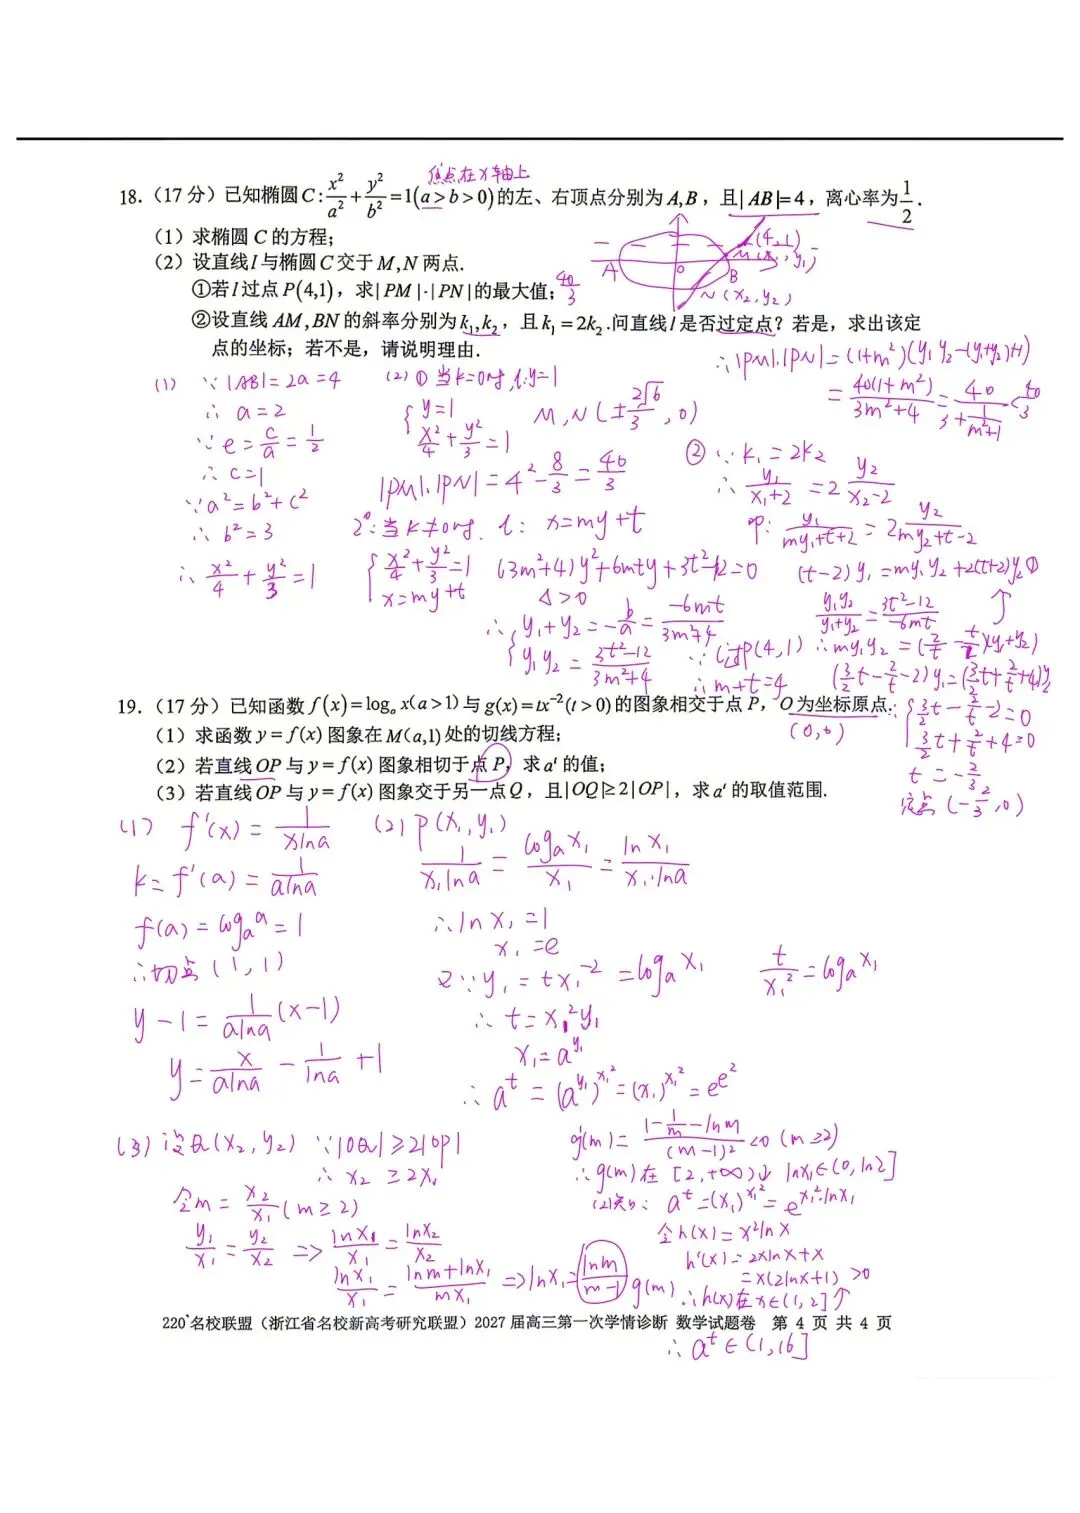 焦点在x轴上
18.（17分）已知椭圆C:x²/a²+y²/b²=1(a>b>0)的左、右顶点分别为A,B，且|AB|=4，离心率为1/2.
（1）求椭圆C的方程；
（2）设直线l与椭圆C交于M,N两点.
①若l过点P(4,1)，求|PM|·|PN|的最大值；40/3
②设直线AM,BN的斜率分别为k₁,k₂，且k₁=2k₂.问直线l是否过定点？若是，求出该定
点的坐标；若不是，请说明理由.
(4,1)
M(x₁,y₁)
A O B
N(x₂,y₂)
(1) ∵|AB|=2a=4
∴a=2
∵e=c/a=1/2
∴c=1
∵a²=b²+c²
∴b²=3
∴x²/4+y²/3=1
(2)①当k=0时,l:y=1
{y=1
x²/4+y²/3=1
M,N(±2√6/3,0)
|PM|·|PN|=4²-8/3=40/3
2°:当k≠0时. l: x=my+t
{x²/4+y²/3=1
x=my+t
(3m²+4)y²+6mty+3t²-12=0
Δ>0
∴{y₁+y₂=-b/a=-6mt/3m²+4
y₁y₂=3t²-12/3m²+4
∵l过P(4,1)
∴m+t=4
∴|PM|·|PN|=(1+m²)(y₁y₂-(y₁+y₂)+1)
=40(1+m²)/3m²+4=40/3+1/m²+1<40/3
②∵k₁=2k₂
∴y₁/x₁+2=2y₂/x₂-2
即:y₁/my₁+t+2=2y₂/my₂+t-2
(t-2)y₁=my₁y₂+2(t+2)y₂①
y₁y₂/y₁+y₂=3t²-12/-6mt
∴my₁y₂=(2/t-t/2)(y₁+y₂)
(3/2t-2/t-2)y₁=(3/2t+2/t+4)y₂
∴{3/2t-2/t-2=0
3/2t+2/t+4=0
t=-2/3
定点(-2/3,0)
19.（17分）已知函数f(x)=logₐx(a>1)与g(x)=tx⁻²(t>0)的图象相交于点P，O为坐标原点.
(0,0)
（1）求函数y=f(x)图象在M(a,1)处的切线方程；
（2）若直线OP与y=f(x)图象相切于点P，求aᵗ的值；
（3）若直线OP与y=f(x)图象交于另一点Q，且|OQ|≥2|OP|，求aᵗ的取值范围.
(1) f'(x)=1/xlna
k=f'(a)=1/alna
f(a)=logₐa=1
∴切点(1,1)
y-1=1/alna(x-1)
y=x/alna-1/lna+1
(2)P(x₁,y₁)
1/x₁lna=logₐx₁/x₁=lnx₁/x₁·lna
∴lnx₁=1
x₁=e
又∵y₁=tx₁⁻²=logₐx₁
t/x₁²=logₐx₁
∴t=x₁²y₁
x₁=a^y₁
∴aᵗ=(a^y₁)^x₁²=(x₁)^x₁²=e^e²
(3)设Q(x₂,y₂) ∵|OQ|≥2|OP|
∴x₂≥2x₁
令m=x₂/x₁(m≥2)
y₁/x₁=y₂/x₂⇒lnx₁/x₁=lnx₂/x₂
lnx₁/x₁=lnm+lnx₁/mx₁⇒lnx₁=lnm/m-1 g(m)
g'(m)=1-1/m-lnm/(m-1)²<0(m≥2)
∴g(m)在[2,+∞)↓ lnx₁∈(0,ln2]
(2)知: aᵗ=(x₁)^x₁²=e^x₁²·lnx₁
令h(x)=x²lnx
h'(x)=2xlnx+x
=x(2lnx+1)>0
∴h(x)在x∈(1,2]↑
∴aᵗ∈(1,16]
220°名校联盟（浙江省名校新高考研究联盟）2027届高三第一次学情诊断 数学试题卷 第 4 页 共 4 页